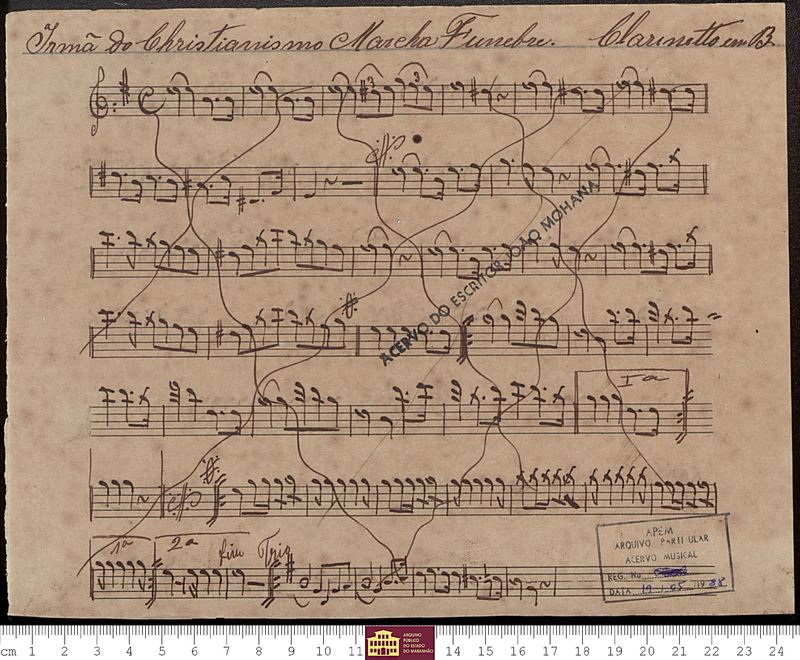 Irmã do Christianismo Marcha Funebre. Clarinetto em B.
3 3
ACERVO DO ESCRITOR JOÃO MOHANA
1a
1a 2a fim Trio
APEM
ARQUIVO PARTICULAR
ACERVO MUSICAL
REG. No
DATA 19 / 05 / 1988
cm 1 2 3 4 5 6 7 8 9 10 11 14 15 16 17 18 19 20 21 22 23 24
ARQUIVO
PÚBLICO
DO ESTADO
DO MARANHÃO